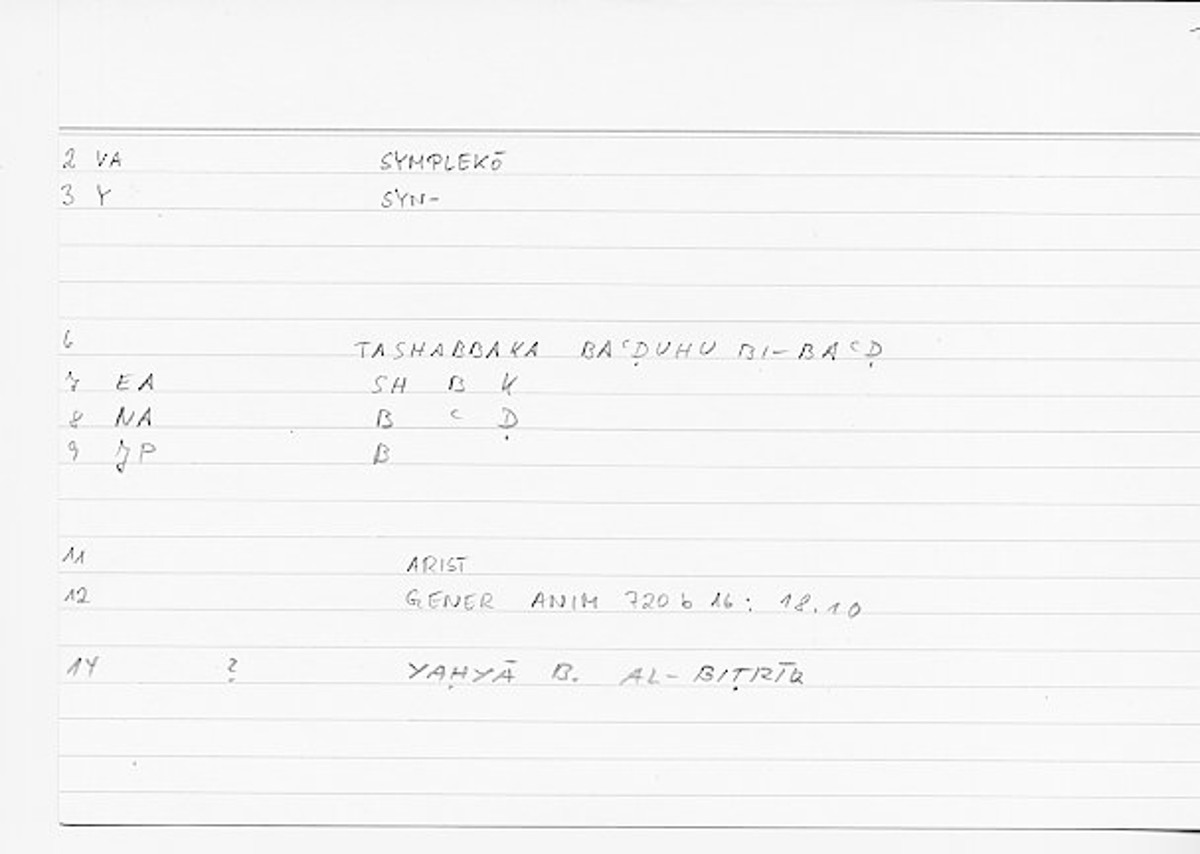 2 VA SYMPLEKŌ
3 Y SYN-
6 TASHABBAKA BAᶜḌUHU BI-BAᶜḌ
7 EA SH B K
8 NA B ᶜ Ḍ
9 JP B
11 ARIST
12 GENER ANIM 720 b 16 : 18.10
14 ? YAḤYĀ B. AL-BIṬRĪQ